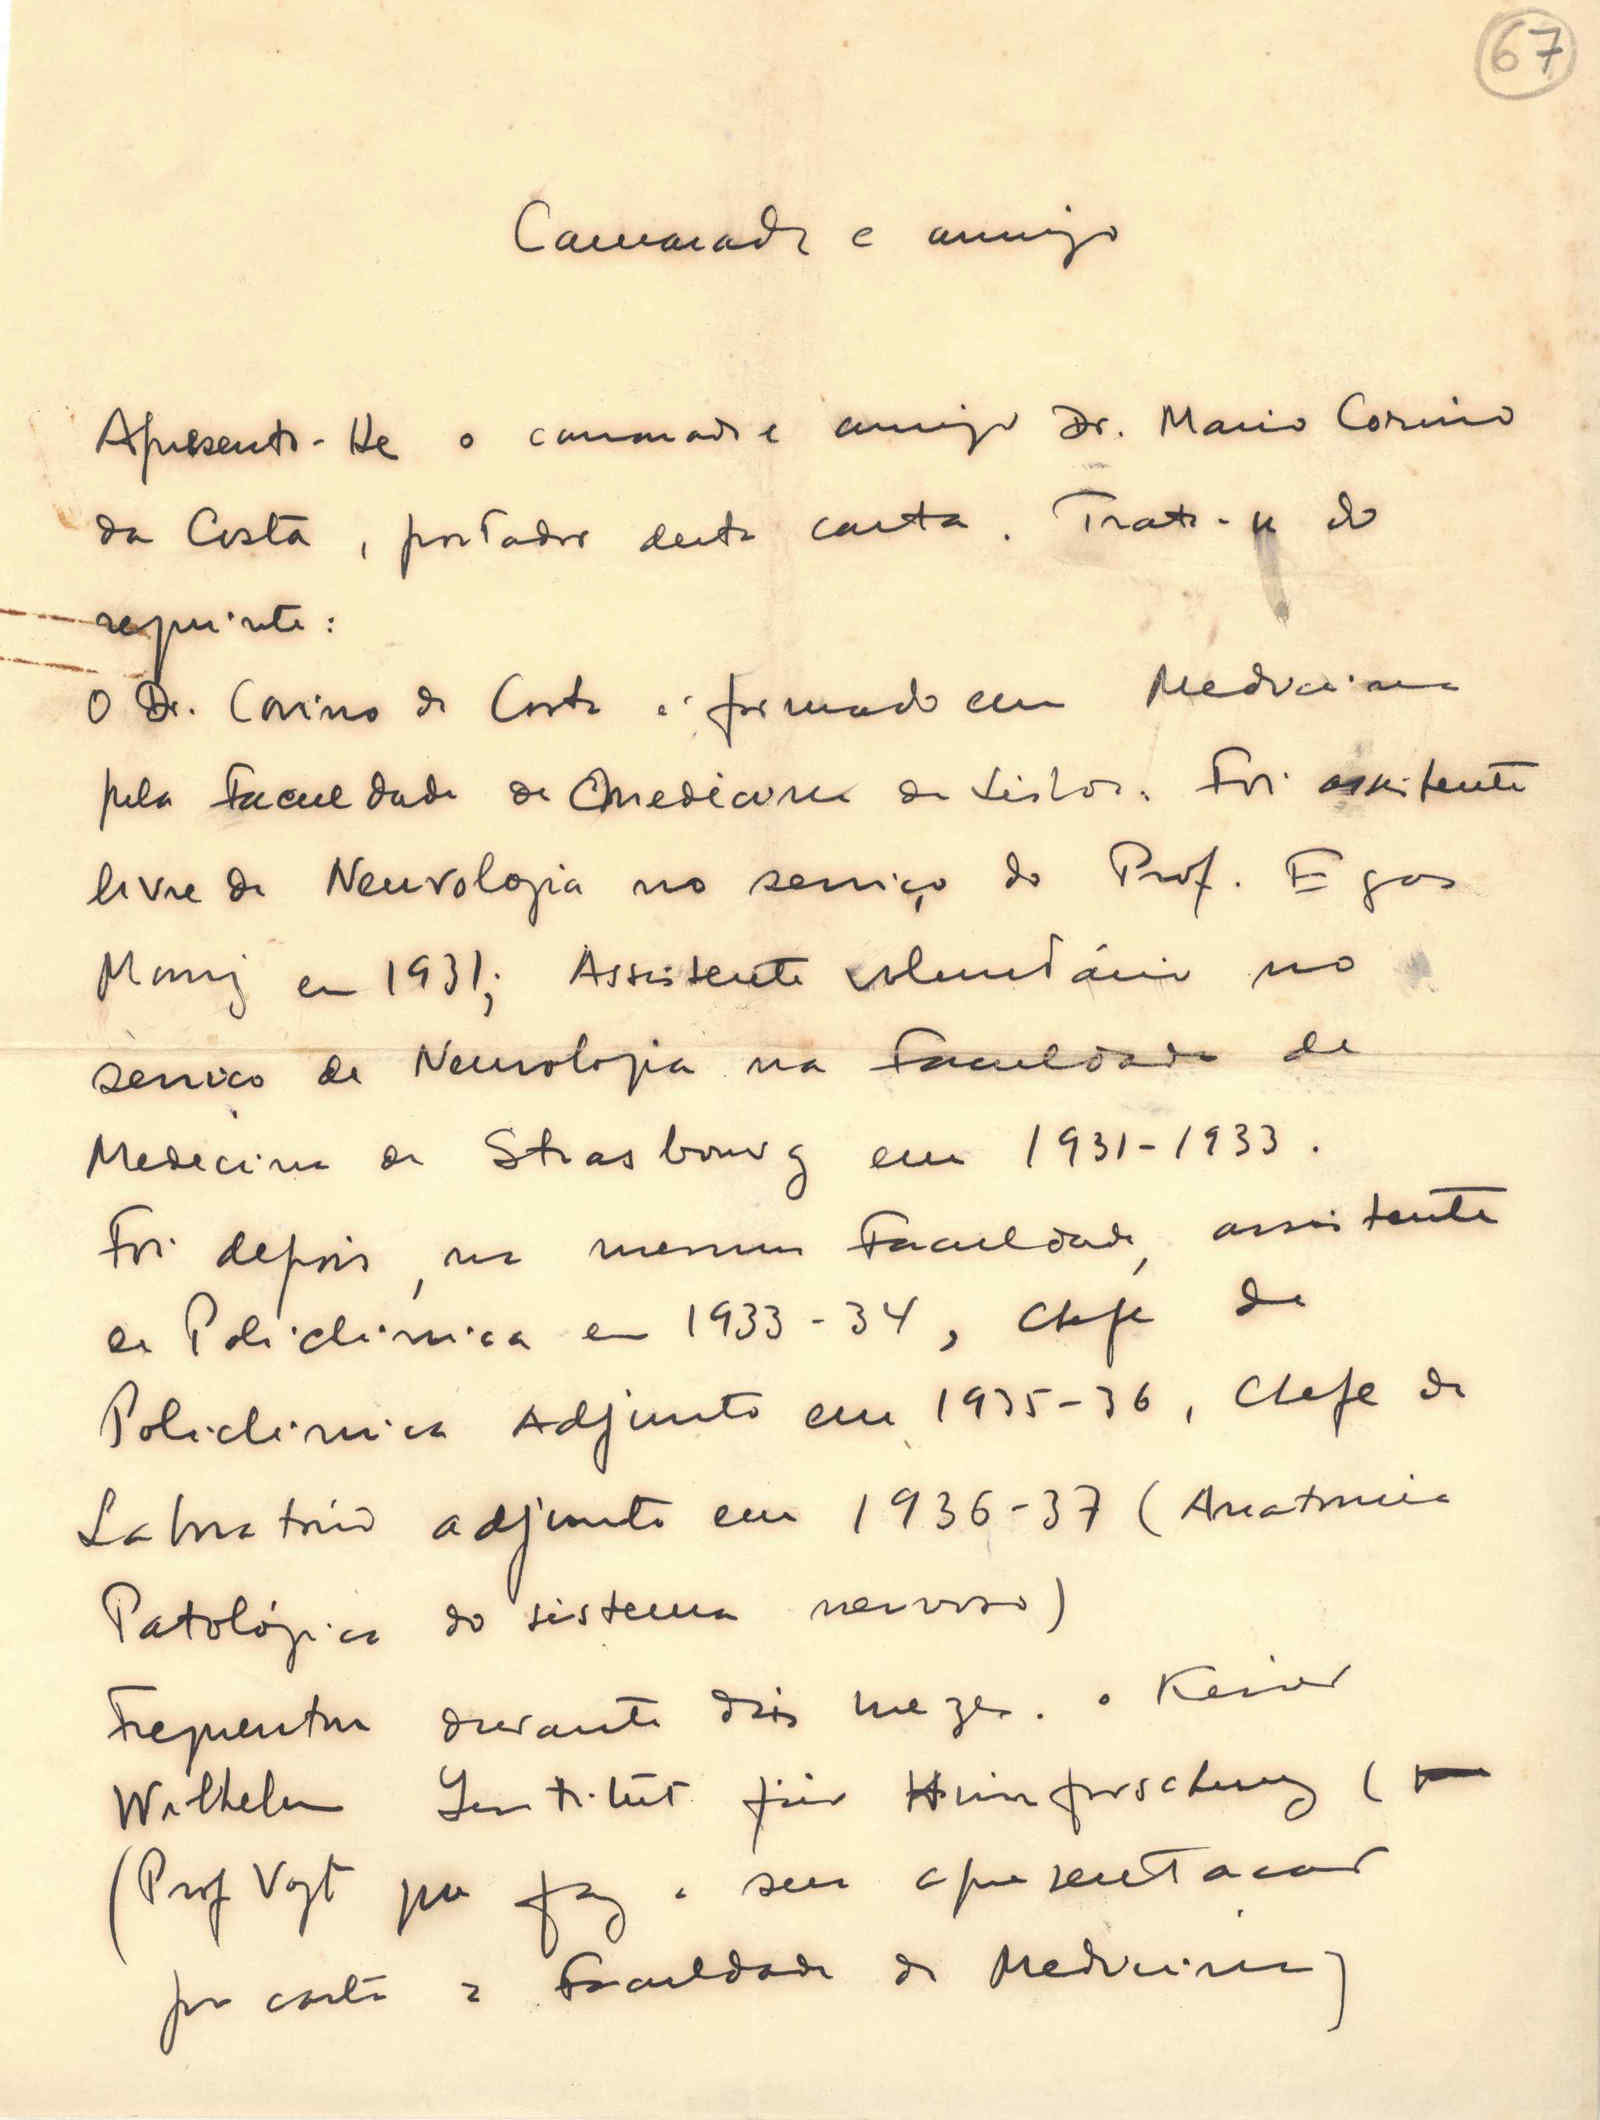 67
Camarada e amigo
Apresento-lhe o camarada e amigo Dr. Mario Corino
da Costa, portador desta carta. Trata-se do
seguinte:
O Dr. Corino da Costa é formado em Medicina
pela Faculdade de Medicina de Lisboa. Foi assistente
livre de Neurologia no serviço do Prof. Egas
Moniz em 1931; Assistente voluntário no
serviço de Neurologia na Faculdade de
Medicina de Strasbourg em 1931-1933.
Foi depois, na mesma Faculdade, assistente
de Policlinica em 1933-34, Chefe de
Policlinica Adjunto em 1935-36, Chefe de
Laboratório adjunto em 1936-37 (Anatomia
Patológica do sistema nervoso)
Frequentou durante dois mezes. o Keiser
Wilhelm Institut für Hirnforschung (
(Prof Vogt que faz a sua apresentacao
por carta à Faculdade de Medicina)